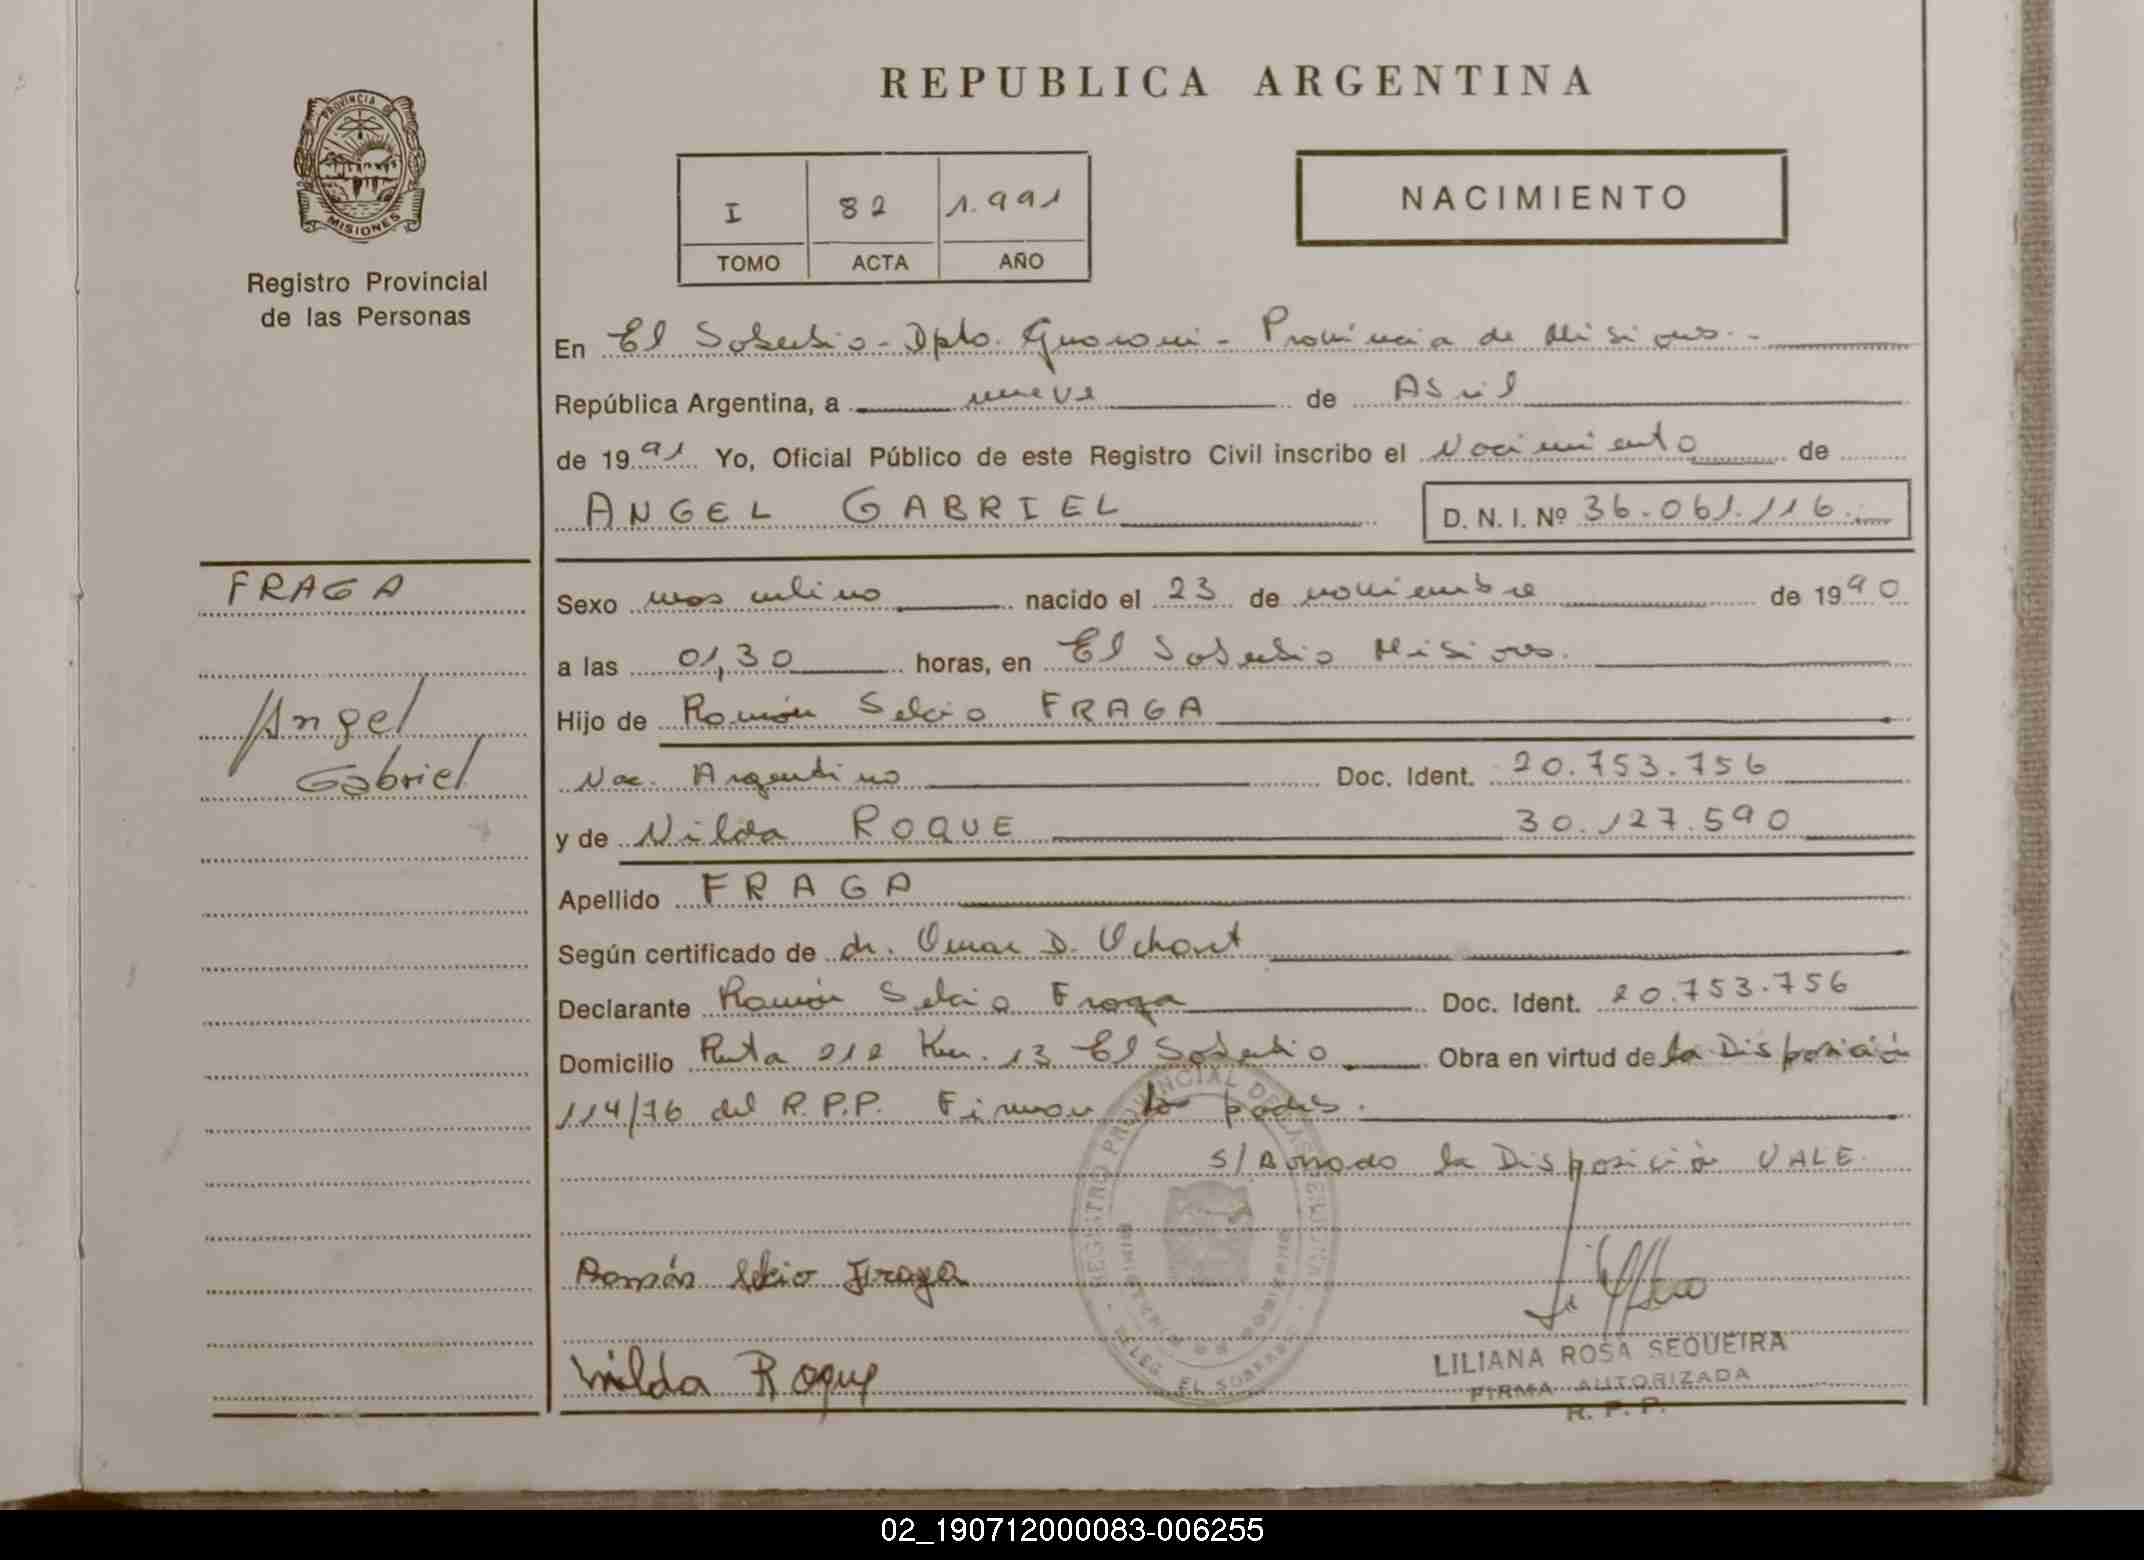 REPUBLICA ARGENTINA
PROVINCIA DE
MISIONES
Registro Provincial
de las Personas
I 82 1.991
TOMO ACTA AÑO
NACIMIENTO
En El Soberbio - Dpto. Guarani - Provincia de Misiones.-
República Argentina, a nueve de Abril
de 1991 Yo, Oficial Público de este Registro Civil inscribo el Nacimiento de
ANGEL GABRIEL D. N. I. Nº 36.061.116.
FRAGA
Angel
Gabriel
Sexo masculino nacido el 23 de noviembre de 1990
a las 01,30 horas, en El Soberbio Misiones.
Hijo de Ramón Selcio FRAGA
Nac. Argentino Doc. Ident. 20.753.756
y de Nilda ROQUE 30.127.590
Apellido FRAGA
Según certificado de dr. Omar D.
Declarante Ramón Selcio Fraga Doc. Ident. 20.753.756
Domicilio Ruta 212 Km. 13 El Soberbio Obra en virtud de la Disposición
114/76 del R.P.P. Firman los padres.
S/ Borrado la Disposición VALE.
REGISTRO PROVINCIAL DE LAS PERSONAS
DELEG. EL SOBERBIO
Ramón Selcio Fraga
Nilda Roque
LILIANA ROSA SEQUEIRA
FIRMA AUTORIZADA
R. P. P.
02_190712000083-006255